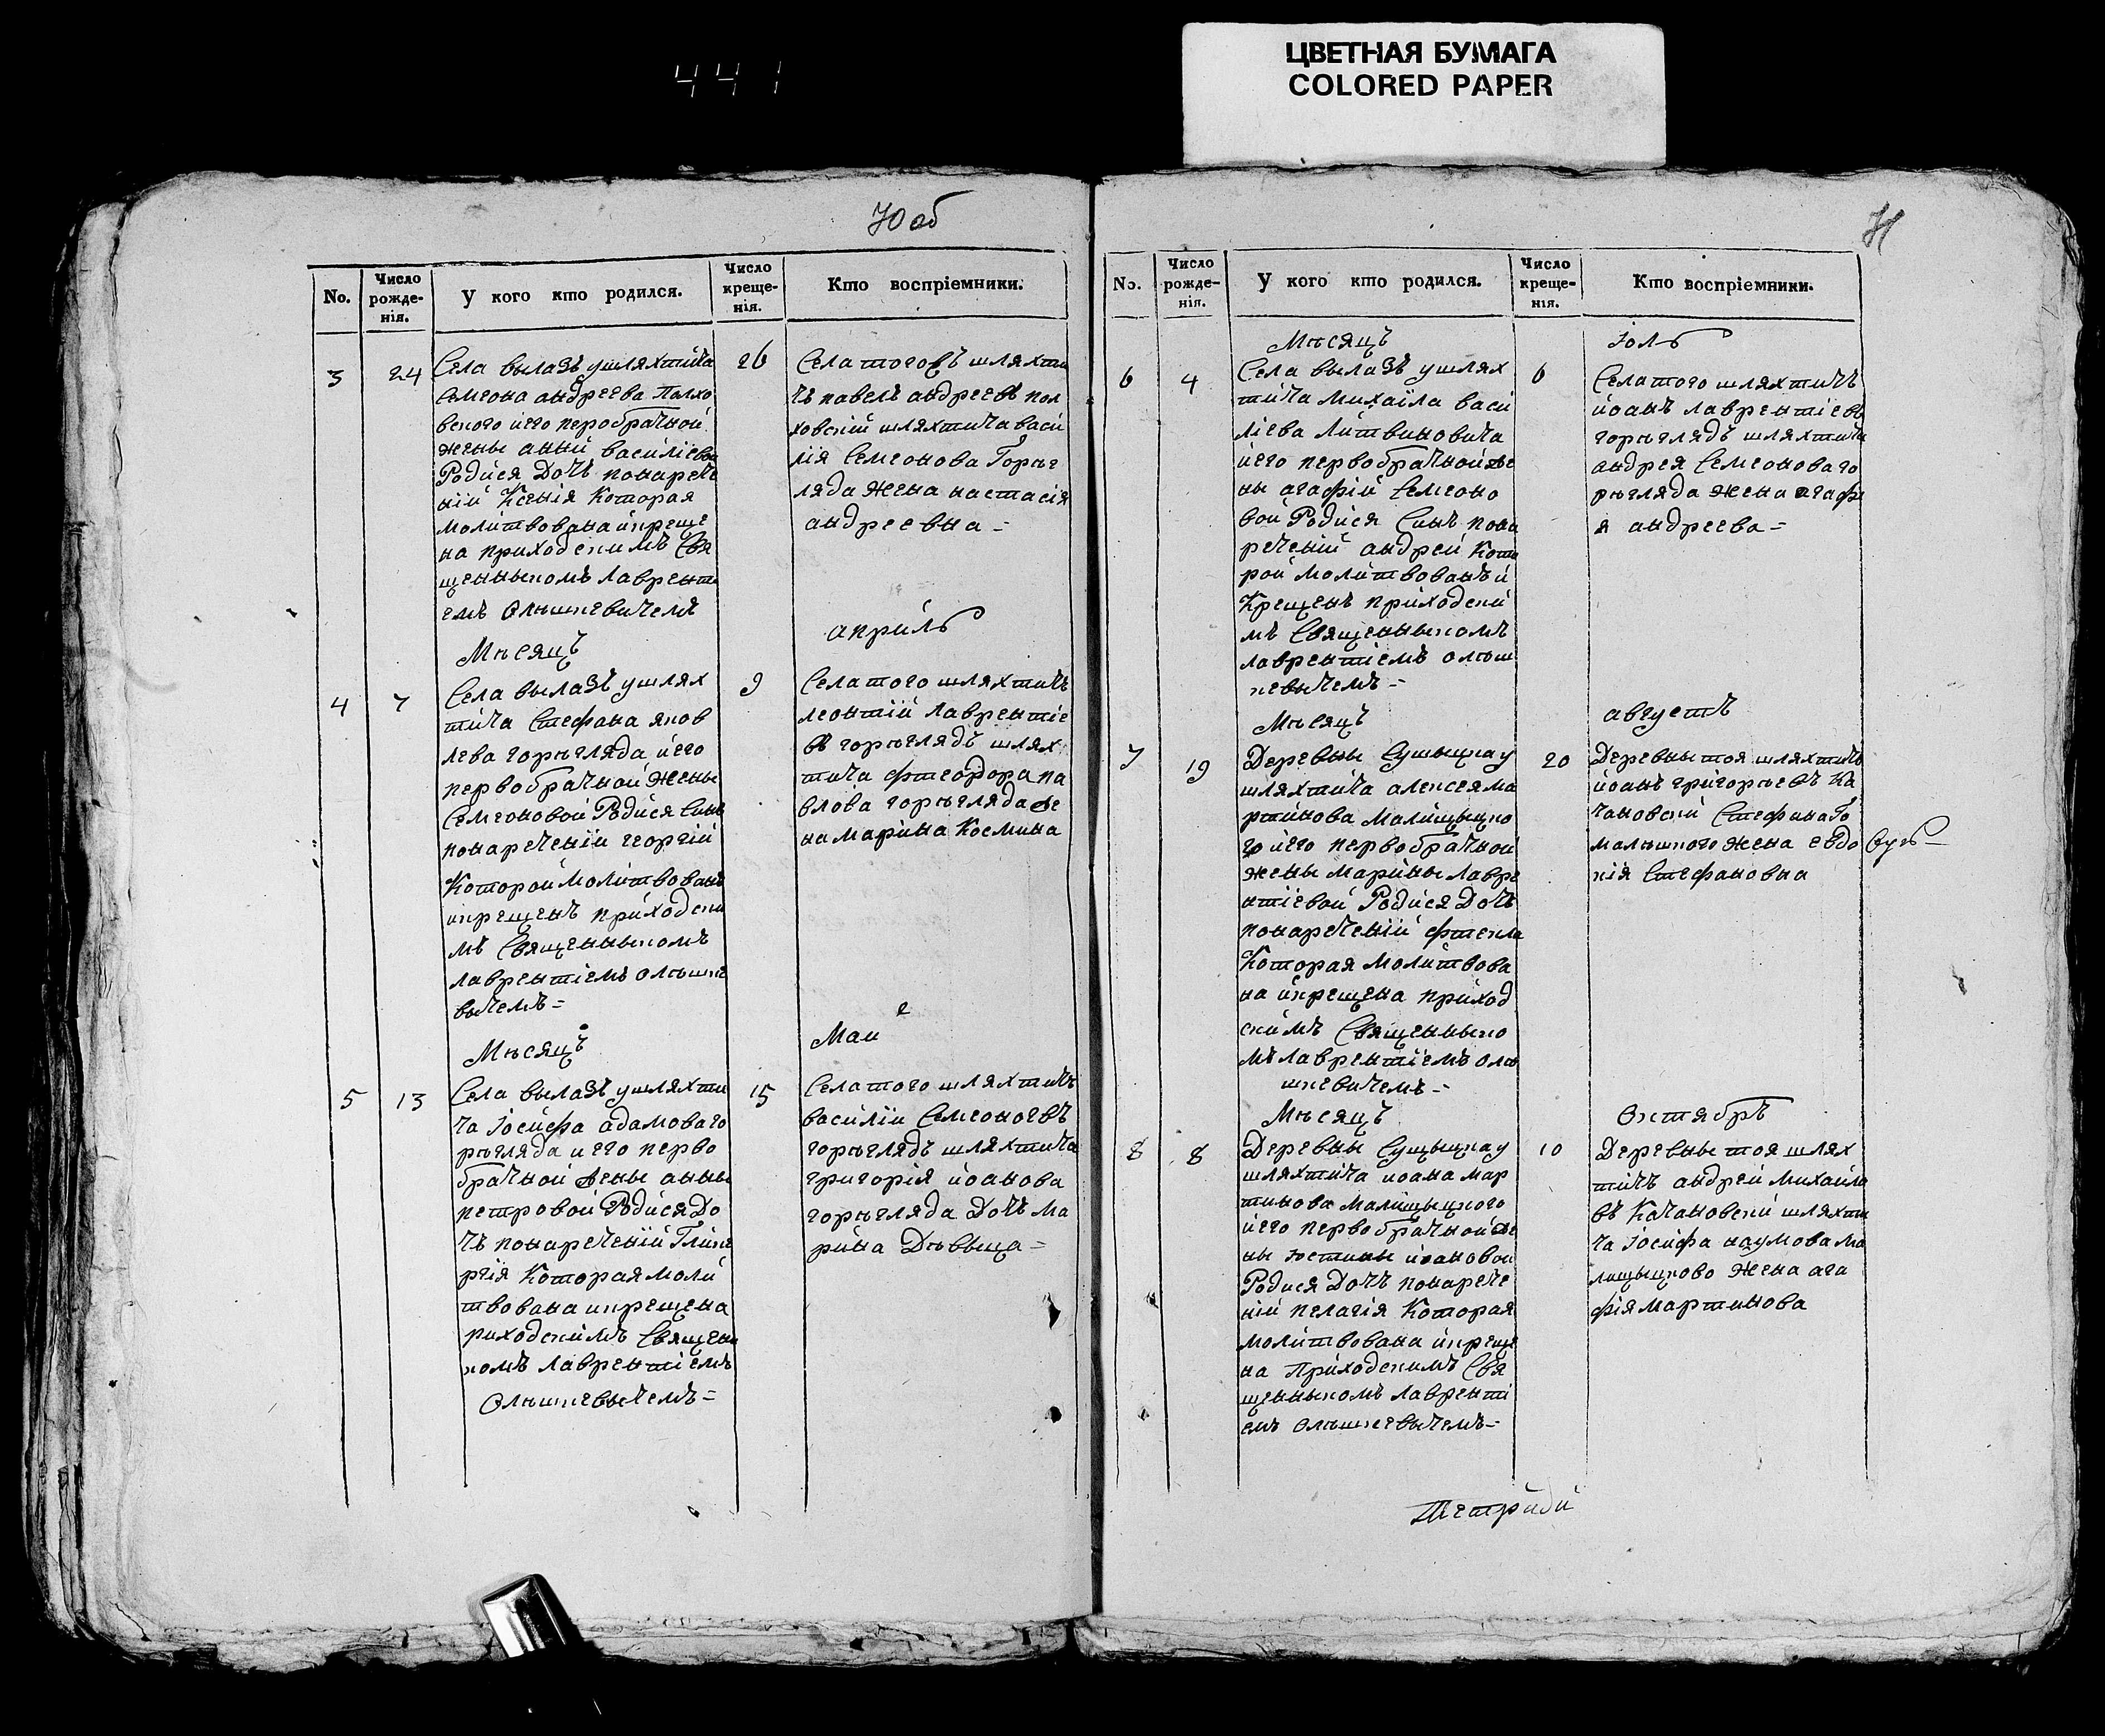 ЦВЕТНАЯ БУМАГА
COLORED PAPER
441
70 об
No.
Число рожде-нія.
У кого кто родился.
Число креще-нія.
Кто воспріемники.
3 24 26
Села вылазъ ушляхтича
Семеона андреева Полхо
вского иего перобрачной
жены анны василіевой
Родися Дочъ понарече
ній Ксенія Которая
молитвована икреще
на приходскимъ Свя
щеныкомъ лавренти
емъ Олѣшкевичемъ
Села того шляхти
чъ павелъ андреевъ пол
ховскій шляхтича васи
лія Семеонова Горег
ляда жена настасія
андреевна =
Мѣсяцъ
априль
4 7 9
Села вылазъ ушлях
тича Стефана яков
лева горегляда иего
первобрачной жены
Семеоновой Родися Синъ
понареченій георгій
Которой молитвованъ
икрещенъ приходски
мъ Священыкомъ
лаврентіемъ олѣшке
вычемъ =
Села того шляхтичъ
леонтій лаврентіе
въ горегладъ шлях
тича фтеодора па
влова горегляда же
на марина Космина
Мѣсяцъ
Маи
5 13 15
Села вылазъ ушляхти
ча Іосифа адамоваго
регляда иего перво
брачной жены анны
петровой Родися До
чъ понареченій Глике
рія Которая моли
твована икрещена
риходскимъ Священ
комъ лаврентіемъ
Олѣшкевычемъ =
Села того шляхтичъ
василіи Семеоногвъ
горегладъ шляхтича
григорія иоанова
горегляда Дочъ Ма
рина Дѣвыца =
71
No.
Число рожде-нія.
У кого кто родился.
Число креще-нія.
Кто воспріемники.
Мѣсяцъ
іоль
6 4 6
Села вылазъ ушлях
тича михаила васи
ліева литвиновича
иего первобрачной же
ны агафіи Семеоно
вой Родися Синъ пона
реченій андрей Кото
рой молитвованъ и
Крещенъ приходски
мъ Священыкомъ
лаврентіемъ олѣш
кевычемъ =
Села того шляхтичъ
иоанъ лаврентіевъ
горегладъ шляхтича
андрея Семеоноваго
регляда жена агафи
я андреева =
Мѣсяцъ
августъ
7 19 20
шляхтича алексея ма
ртинова
го иего первобрачной
жены марины лавре
нтіевой Родися Дочъ
понареченій фтекла
Которая молитвова
на икрещена приход
скимъ Священыко
мъ лаврентіемъ олѣ
шкевичемъ =
Деревны тоя шляхтичъ
иоанъ григорьевъ Ка
чановскій Стефана Го
малѣшкого жена евдо
кія Стефановна
Мѣсяцъ
Октябръ
8 8 10
шляхтича иоана мар
тинова
иего первобрачной же
ны юстины иоановой
Родися Дочъ понарече
ній пелагія Которая
молитвована икреще
на Приходскимъ Свя
щеныкомъ лавренті
емъ олѣшкевычемъ =
Деревны тоя шлях
тичъ андрей михаило
въ Качановскій шляхти
ча Іосифа наумова ма
жена ага
фія мартинова